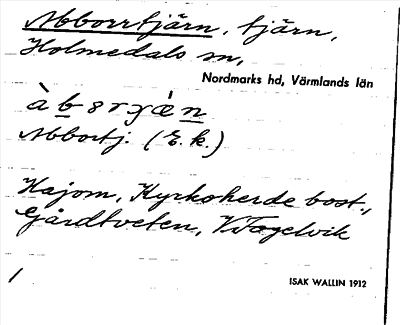 Abborrtjärn, tjärn,
Holmedals sn,
Nordmarks hd, Värmlands län
Abbortj. (E. k.)
Kajom, Kyrkoherde bost.,
Gårdtveten, V. Fogelvik
/
ISAK WALLIN 1912